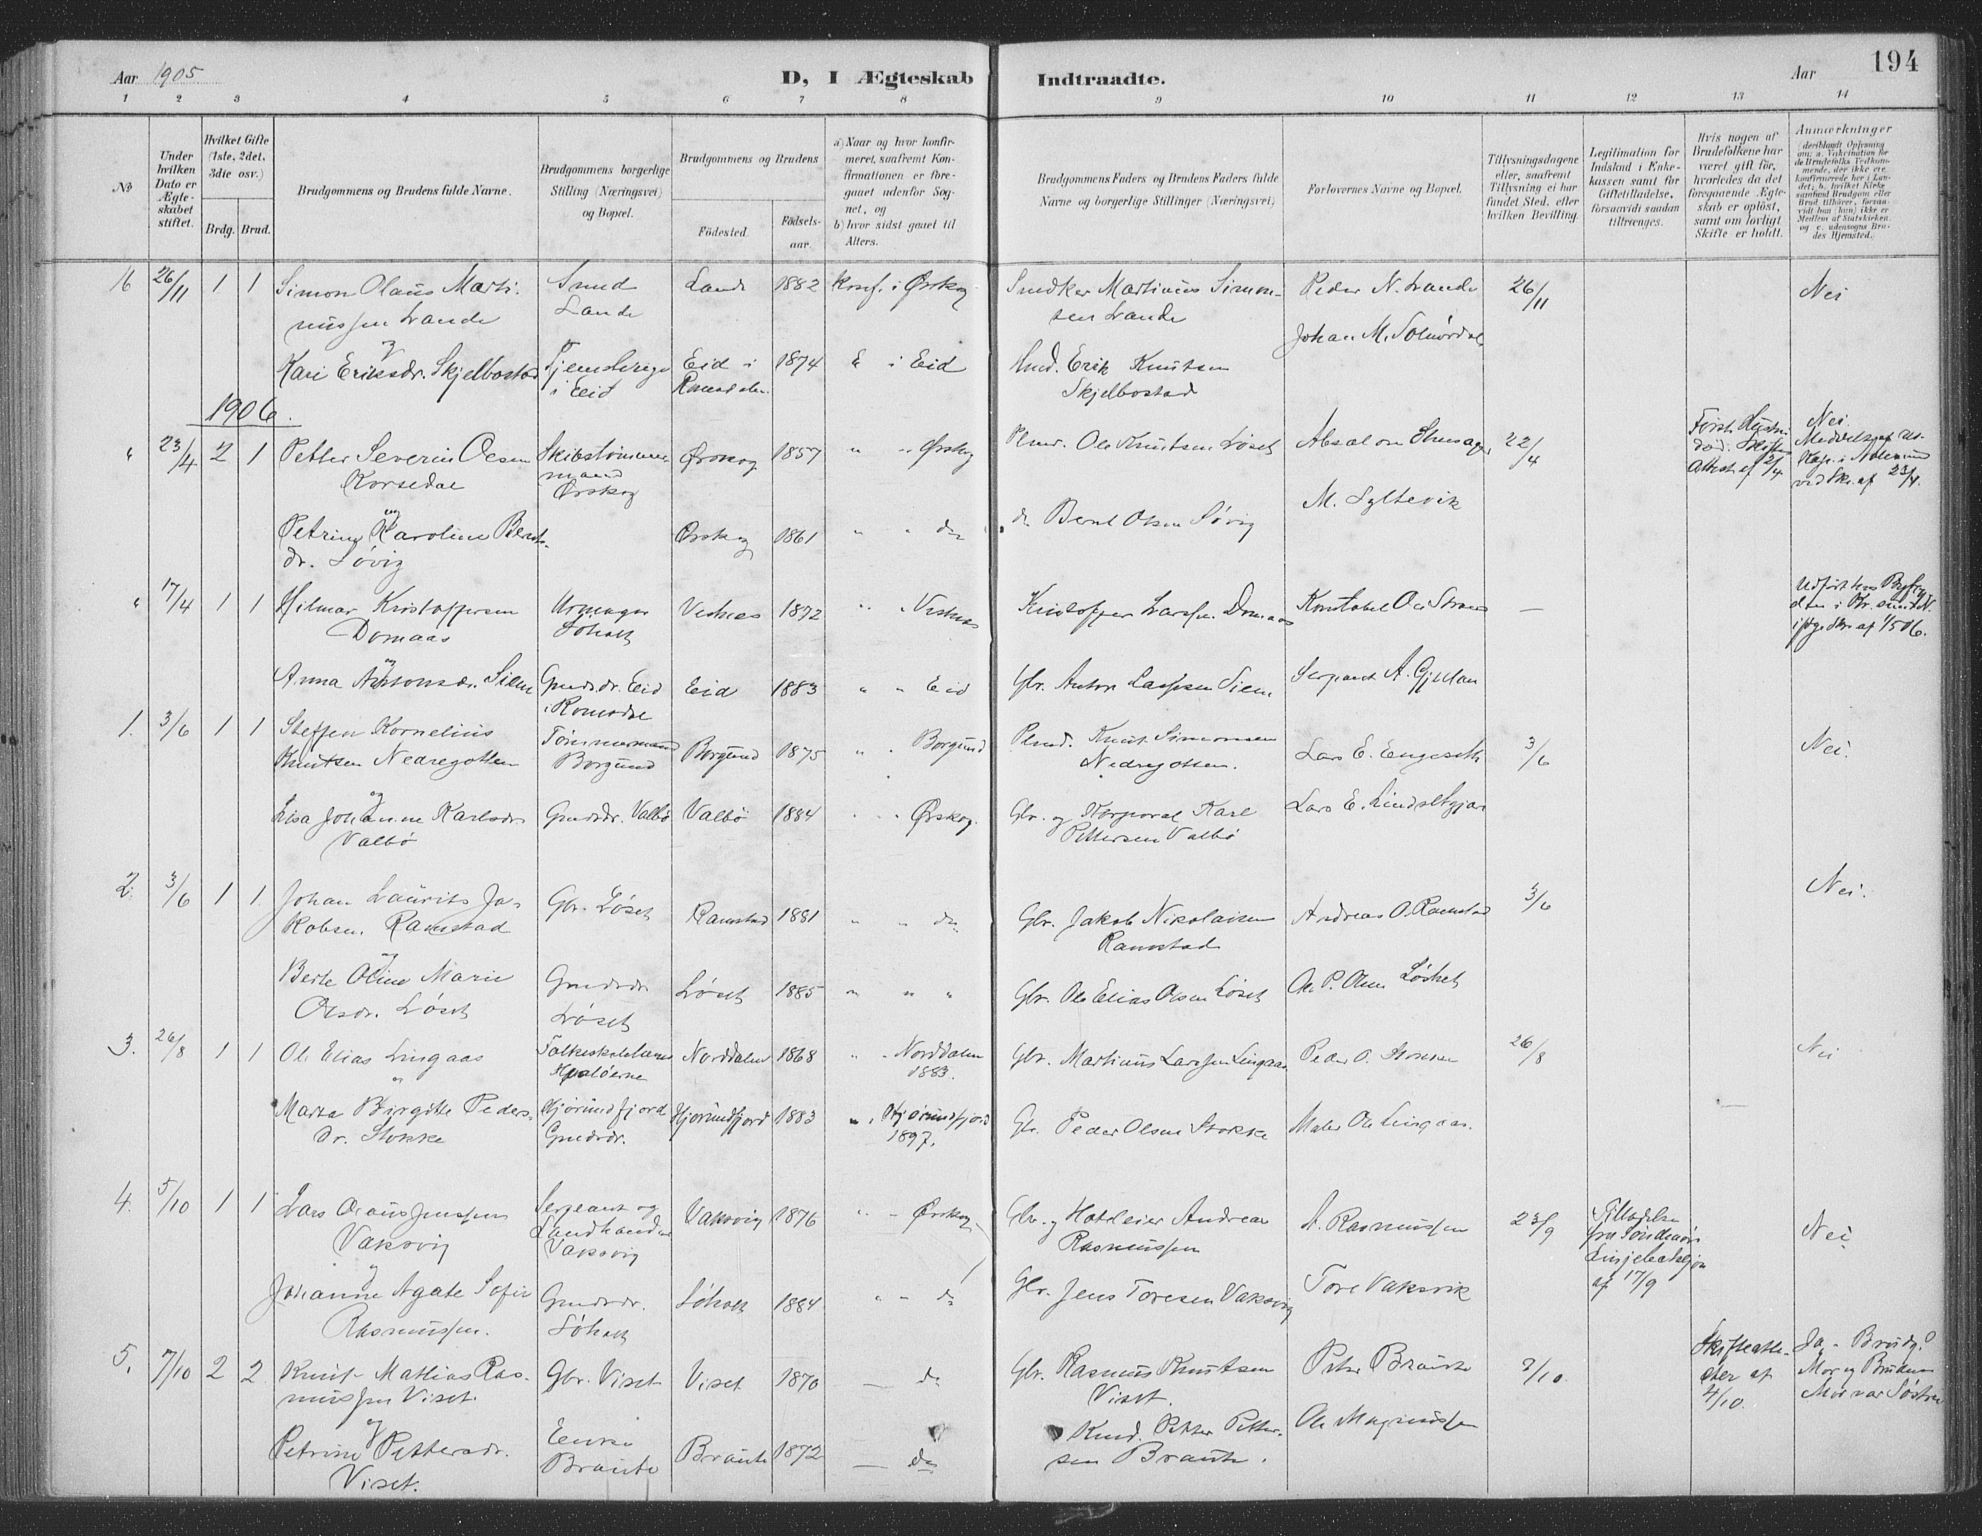 Aar 1905
D, I Ægteskab Indtraadte.
Aar
194
1 2 3 4 5 6 7 8 9 10 11 12 13 14
No
Under hvilken Dato er Ægteskabet stiftet.
Hvilket Gifte (1ste, 2det, 3die osv.)
Brdg. Brud.
Brudgommens og Brudens fulde Navne.
Brudgommens borgerlige Stilling (Næringsvei) og Bopæl.
Brudgommens og Brudens
Fødested.
Fødsels-aar.
a) Naar og hvor konfirmeret, saafremt Konfirmationen er foregaaet udenfor Sognet, og
b) hvor sidst gaaet til Alters.
Brudgommens Faders og Brudens Faders fulde Navne og borgerlige Stillinger (Næringsvei)
Forlovernes Navne og Bopæl.
Tillysningsdagene eller, saafremt Tillysning ei har fundet Sted, efter hvilken Bevilling.
Legitimation for Indskud i Enkekassen samt for Giftetilladelse, forsaavidt saadan tiltrænges.
Hvis nogen af Brudefolkene har været gift før, hvorledes da det foregaaende Ægteskab er opløst, samt om lovligt Skifte er holdt.
Anmærkninger
16 26/11 1 1 Simon Olaus Martinussen Lande Smed Lande Lande 1882 Konf. i Ørskog Smedker Martinus Simonsen Lande Peder N. Lande 26/11 Nei
Johan M. Solnørdal
og
Kari Eriksdr. Skjelbostad i Eid Eid i Romsdalen 1874 i Eid Erik Knutsen Skjelbostad
1906.
" 23/4 2 1 Petter Severin Olsen Korsedal Skibstømmermand Ørskog Ørskog 1857 " " Ørskog Ole Knutsen Løset Absalon 22/4 Nei.
og
Petrine Karoline Berntsdr. Søvig Ørskog 1861 " " do Bernt Olsen Søvig M. Syltevik
" 17/4 1 1 Hilmar Kristoffersen Domaas Urmager Søholt Vestnes 1872 " " Vestnes Kristoffer Larssen Domaas Konstabel —
og
Anna Antonsdr. Siem Gmdsdr. Eid i Romsdal Eid 1883 " " Eid Gbr. Anton Larssen Siem Sergeant A.
1. 3/6 1 1 Steffen Kornelius Knutsen Nedregotten Tømmermand Borgund Borgund 1875 " " Borgund Knut Simonsen Nedregotten. Lars E. Engeseth 3/6 Nei.
og
Elsa Johanne Karlsdr Valbø Gmdsdr. Valbø Valbø 1884 " " Ørskog. Gbr. og Korporal Karl Pettersen Valbø Lars E.
2. 3/6 1 1 Johan Laurits Jakobsen Ramstad Gbr. Løset Ramstad 1881 " " do Gbr. Jakob Nikolaisen Ramstad Andreas O. Ramstad 3/6 Nei.
og
Berte Oline Marie Olsdr. Løset Gmdsdr Løset Løset 1885 " " " Gbr. Ole Elias Olsen Løset Ole P. Olsen Løset
3. 26/8 1 1 Ole Elias Lingaas Folkeskolelærer Hvaløerne Norddalen 1868 " " Norddalen 1883. Gbr. Martinus Larssen Lingaas Peder O. 26/8 Nei
og
Marta Birgitte Pedersdr. Stokke Hjørundfjord Gmdsdr. Hjørundfjord 1883 " " Hjørundfjord 1897. Gbr. Peder Olsen Stokke Maler Ole Lingaas.
4. 5/10 1 1 Lars Olaus Jenssen Vaksvig Sergeant og Landhandler Vaksvig Vaksvig 1876 " " Ørskog Gbr. og Andreas Rasmussen A. Rasmussen 23/9 Tilladelse fra Søndmør Linjebataljon af 17/9 Nei
og
Johanne Agate Sofie Rasmussen. Gmdsdr. Søholt Søholt 1884 " " do Gbr. Jens Toresen Vaksvig Tore Vaksvik
5. 7/10 2 2 Knut Mathias Rasmussen Viset Gbr. Viset Viset 1870 — do Gbr. Rasmus Knutsen Viset. Peter Braute 7/10 Skifteattester af 4/10. Ja - Brudg.s Mor og Brudens Mor var Søstre
og
Petrine Pettersdr. Viset. Enke Braute Braute 1872 — do Petter Pettersen Braute. Ole Magnussen